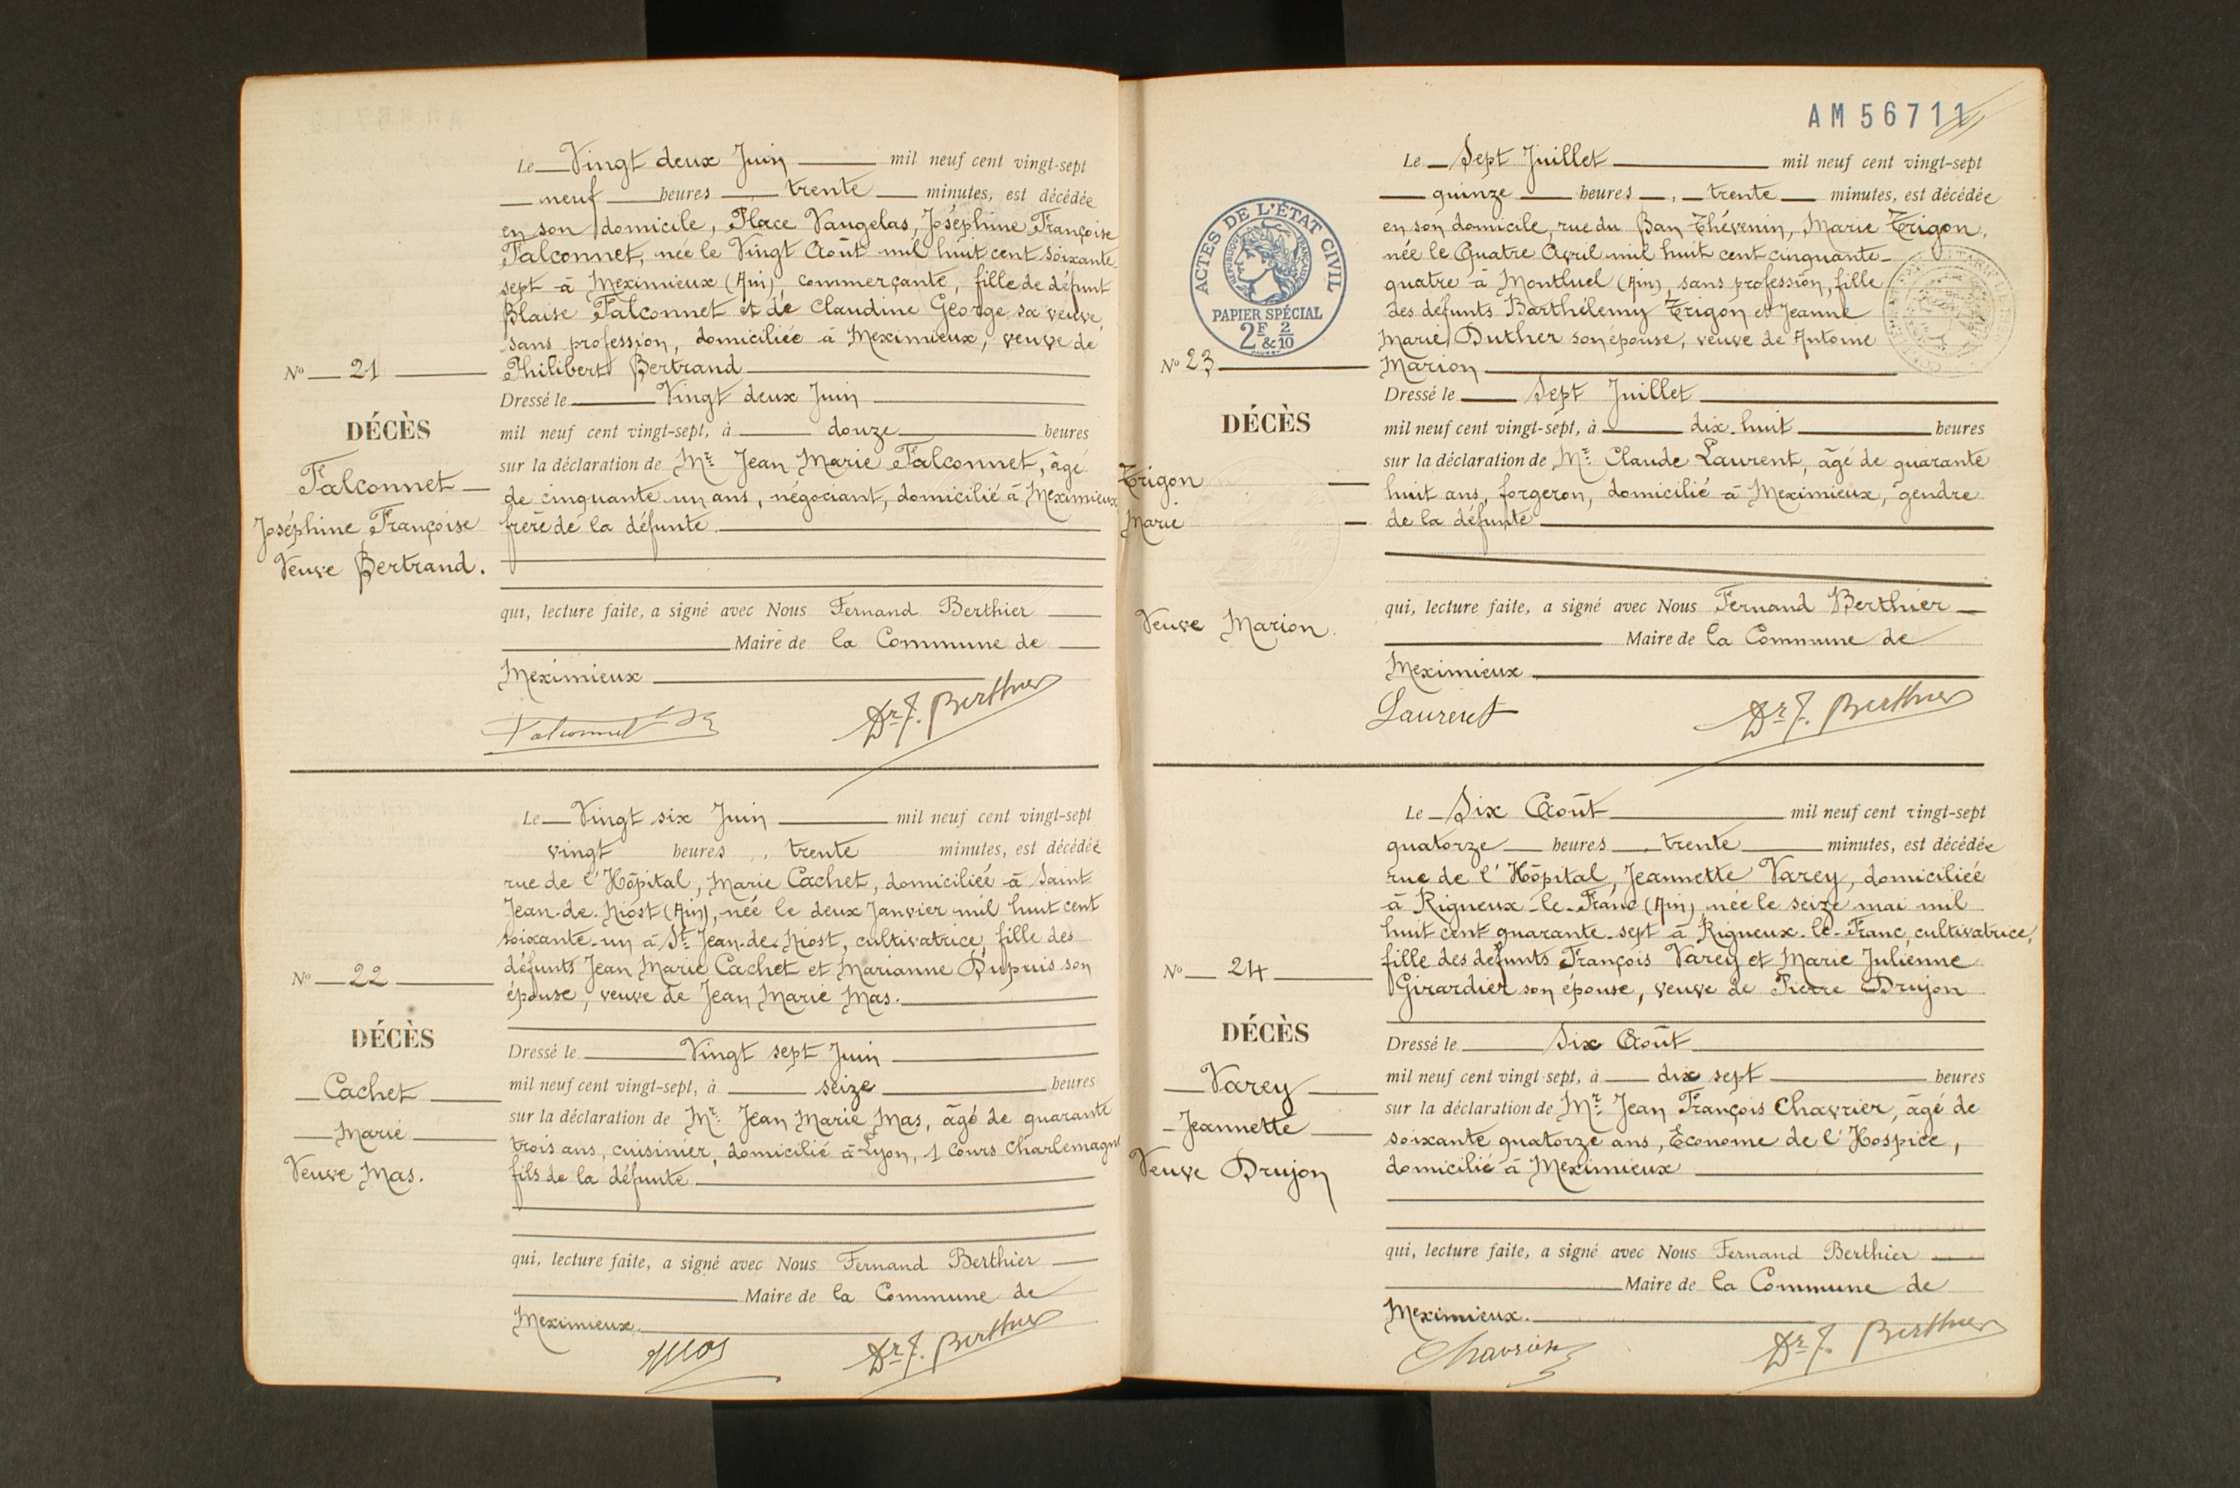 Le Vingt deux Juin mil neuf cent vingt-sept
neuf heures, trente minutes, est décédée
en son domicile, Place Vaugelas, Joséphine Françoise
Falconnet, née le Vingt Août mil huit cent soixante
sept à Meximieux (Ain), commerçante, fille de défunt
Blaise Falconnet et de Claudine George sa veuve,
sans profession, domiciliée à Meximieux, veuve de
Philibert Bertrand
Nº 21
DÉCÈS
Falconnet
Joséphine Françoise
Veuve Bertrand.
Dressé le Vingt deux Juin
mil neuf cent vingt-sept, à douze heures
sur la déclaration de Mr Jean Marie Falconnet, âgé
de cinquante un ans, négociant, domicilié à Meximieux
frère de la défunte
qui, lecture faite, a signé avec Nous Fernand Berthier
Maire de la Commune de
Meximieux
Falconnet
Dr F. Berthier
Le Vingt six Juin mil neuf cent vingt-sept
vingt heures, trente minutes, est décédée
rue de l'Hôpital, Marie Cachet, domiciliée à Saint
Jean-de-Niost (Ain), née le deux Janvier mil huit cent
soixante-un à St Jean-de-Niost, cultivatrice, fille des
défunts Jean Marie Cachet et Marianne Dupuis son
épouse, veuve de Jean Marie Mas.
Nº 22
DÉCÈS
Cachet
Marie
Veuve Mas.
Dressé le Vingt sept Juin
mil neuf cent vingt-sept, à seize heures
sur la déclaration de Mr Jean Marie Mas, âgé de quarante
trois ans, cuisinier, domicilié à Lyon, 1 Cours Charlemagne
fils de la défunte
qui, lecture faite, a signé avec Nous Fernand Berthier
Maire de la Commune de
Meximieux.
Mas
Dr F. Berthier
AM 56711
ACTES DE L'ÉTAT CIVIL
RÉPUBLIQUE FRANÇAISE
PAPIER SPÉCIAL
2F & 2/10
Le Sept Juillet mil neuf cent vingt-sept
quinze heures, trente minutes, est décédée
en son domicile, rue du Ban Thévenin, Marie Trigon,
née le Quatre Avril mil huit cent cinquante-
quatre à Montluel (Ain), sans profession, fille
des défunts Barthélemy Trigon et Jeanne
Marie Duther son épouse, veuve de Antoine
Marion
Nº 23
DÉCÈS
Trigon
Marie
Veuve Marion.
Dressé le Sept Juillet
mil neuf cent vingt-sept, à dix-huit heures
sur la déclaration de Mr Claude Laurent, âgé de quarante
huit ans, forgeron, domicilié à Meximieux, gendre
de la défunte
qui, lecture faite, a signé avec Nous Fernand Berthier
Maire de la Commune de
Meximieux
Laurent
Dr F. Berthier
Le Six Août mil neuf cent vingt-sept
quatorze heures, trente minutes, est décédée
rue de l'Hôpital, Jeannette Varey, domiciliée
à Rigneux-le-Franc (Ain), née le seize mai mil
huit cent quarante-sept à Rigneux-le-Franc, cultivatrice,
fille des défunts François Varey et Marie Julienne
Girardier son épouse, veuve de Pierre Drujon
Nº 24
DÉCÈS
Varey
Jeannette
Veuve Drujon
Dressé le Six Août
mil neuf cent vingt-sept, à dix sept heures
sur la déclaration de Mr Jean François Chavrier, âgé de
soixante quatorze ans, Econome de l'Hospice,
domicilié à Meximieux
qui, lecture faite, a signé avec Nous Fernand Berthier
Maire de la Commune de
Meximieux.
Chavrier
Dr F. Berthier